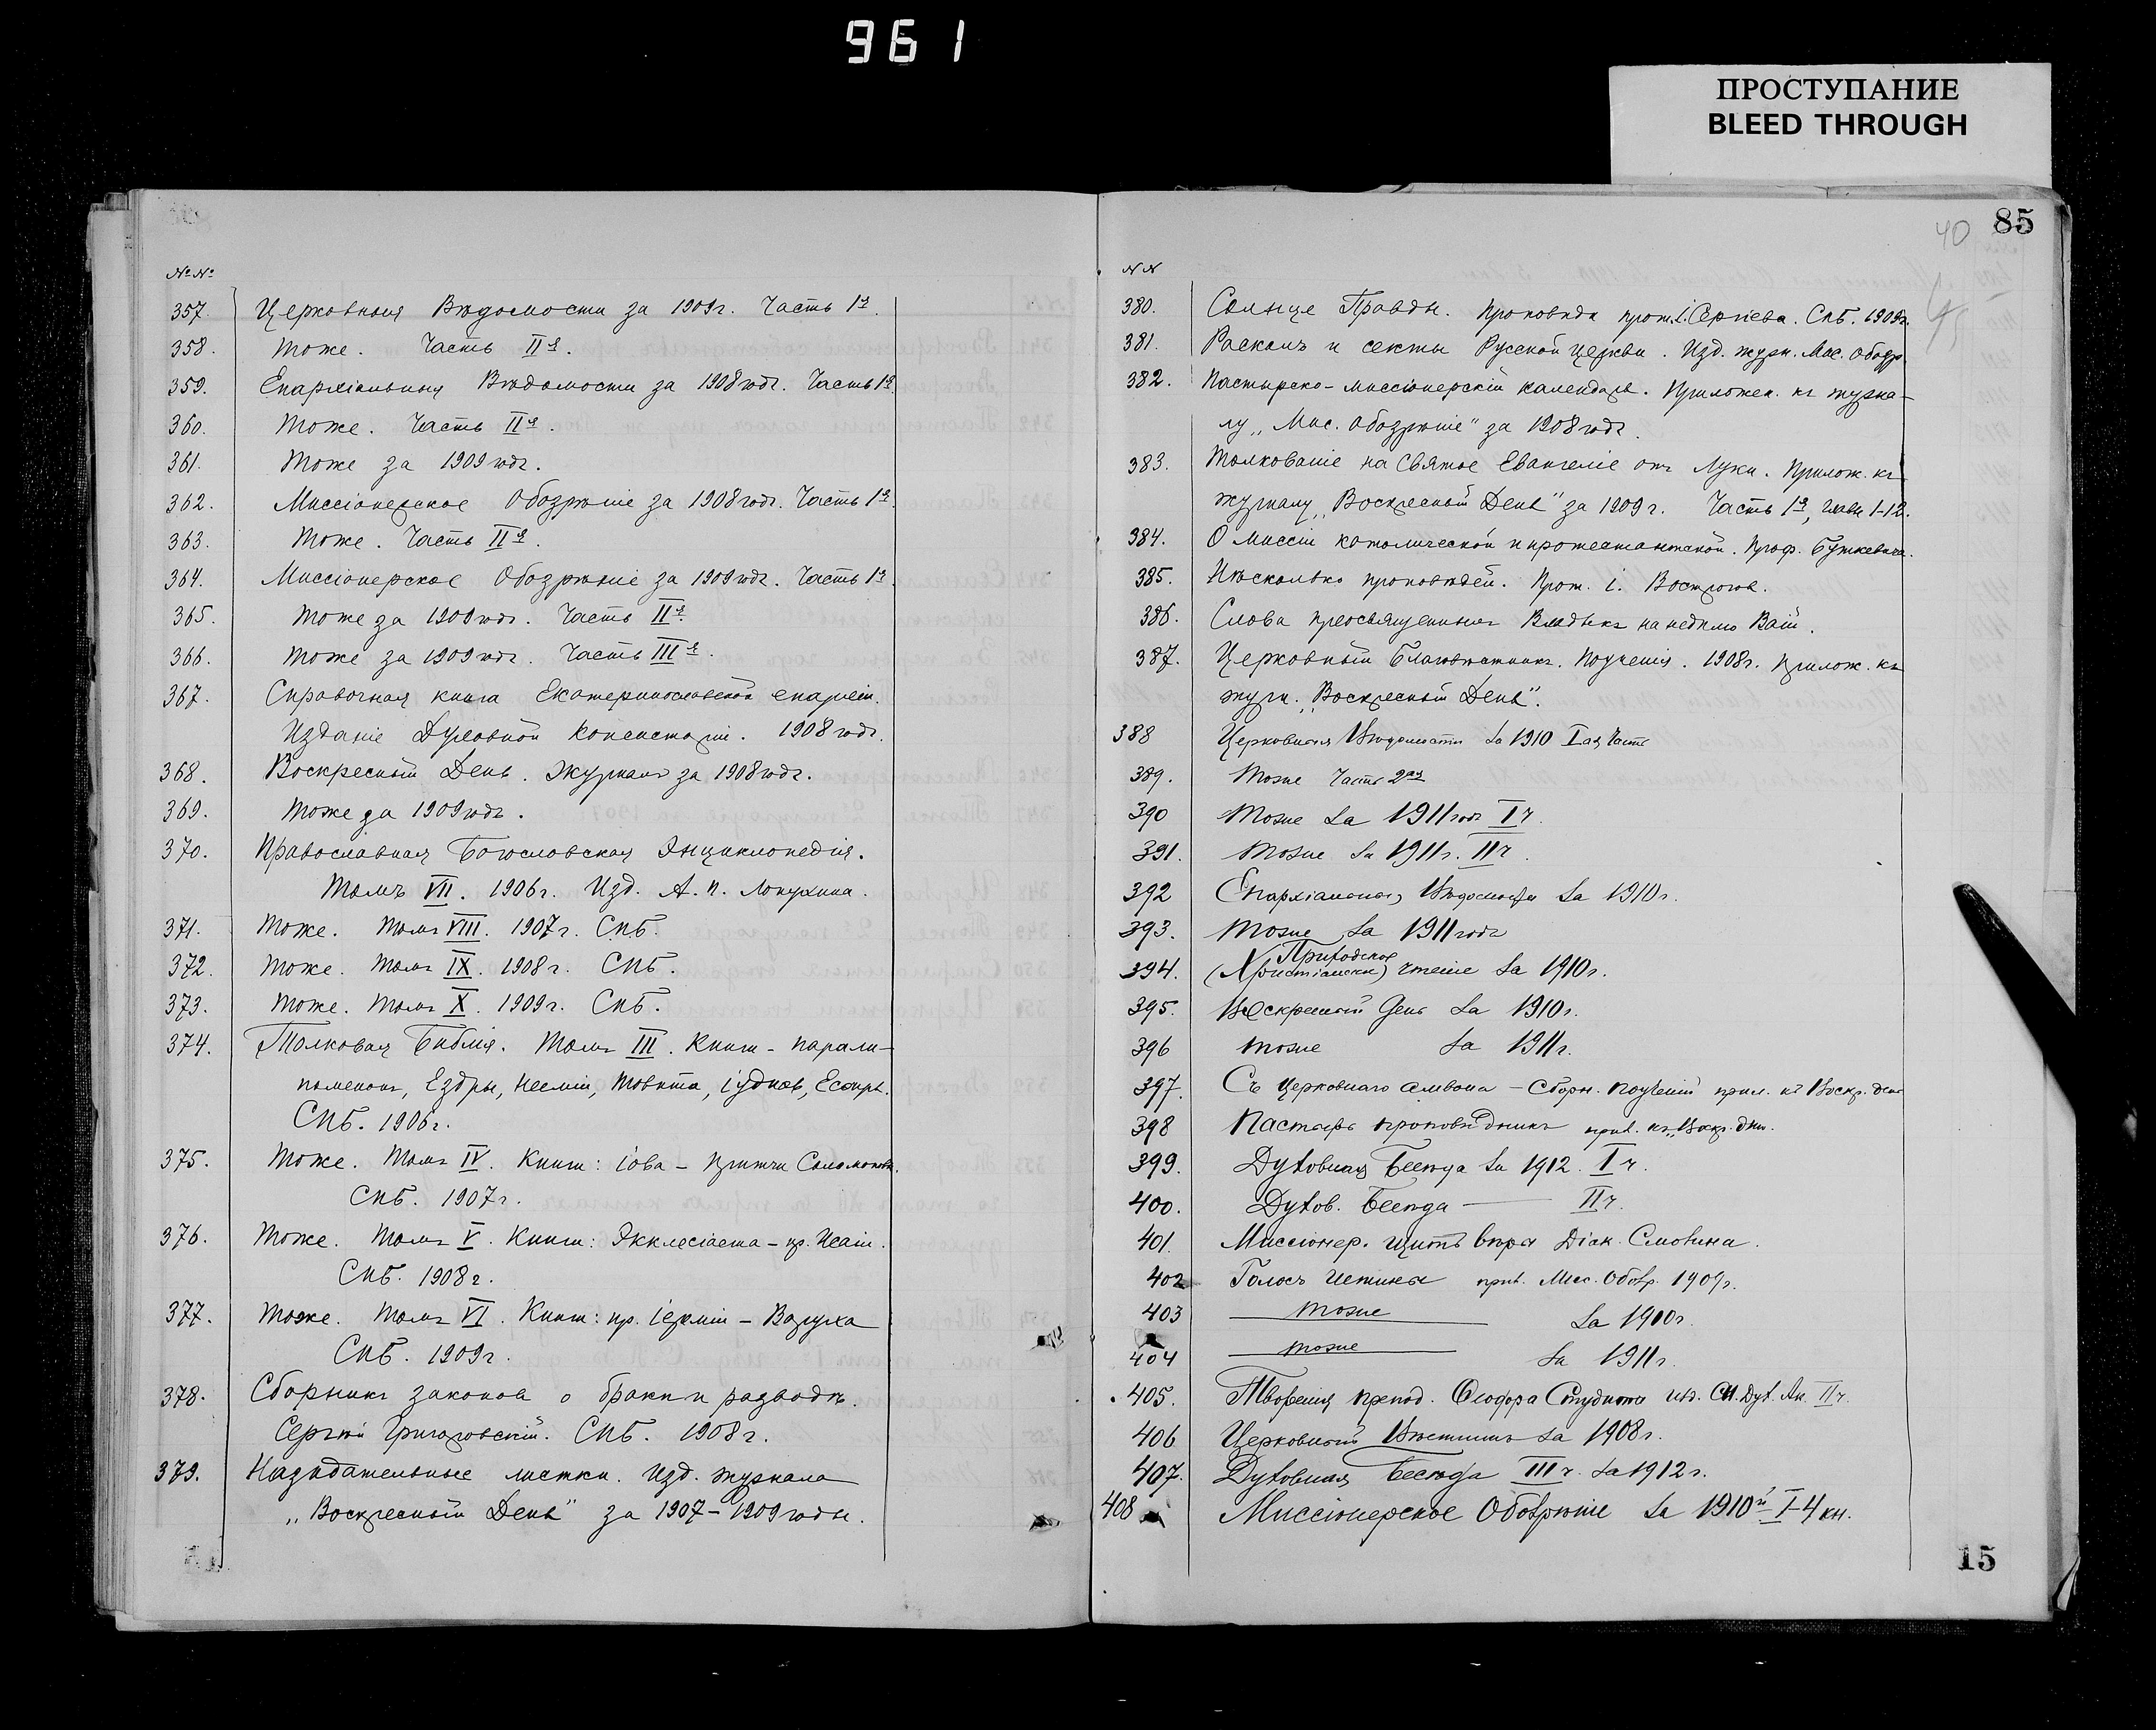 961
ПРОСТУПАНИЕ
BLEED THROUGH
№ №
357. Церковныя Вѣдомости за 1909 г. Часть 1я.
358. Тоже. Часть IIя.
359. Епархіальныя Вѣдомости за 1908 годъ. Часть 1я
360. Тоже. Часть IIя.
361. Тоже за 1909 годъ.
362. Миссіонерское Обозрѣніе за 1908 годъ. Часть 1я.
363. Тоже. Часть IIя.
364. Миссіонерское Обозрѣніе за 1909 годъ. Часть 1я.
365. Тоже за 1909 годъ. Часть IIя.
366. Тоже за 1909 годъ. Часть IIIя.
367. Справочная книга Екатеринославской епархіи.
Изданіе Духовной Консисторіи. 1908 годъ.
368. Воскресный День. Журналъ за 1908 годъ.
369. Тоже за 1909 годъ.
370. Православная Богословская Энциклопедія.
Томъ VII. 1906 г. Изд. А. П. Лопухина.
371. Тоже. Томъ VIII. 1907 г. СПБ.
372. Тоже. Томъ IX. 1908 г. СПБ.
373. Тоже. Томъ X. 1909 г. СПБ.
374. Толковая Библія. Томъ III. Книги – Парали-
поменонъ, Ездры, Нееміи, Товита, Іудиѳь, Есѳирь.
СПБ. 1906 г.
375. Тоже. Томъ IV. Книги: Іова – Притчи Соломоновы.
СПБ. 1907 г.
376. Тоже. Томъ V. Книги: Экклесіаста – пр. Исаіи.
СПБ. 1908 г.
377. Тоже. Томъ VI. Книги: пр. Іереміи – Варуха
СПБ. 1909 г.
378. Сборникъ законовъ о бракѣ и разводѣ.
Сергѣй Григоровскій. СПБ. 1908 г.
379. Назидательные листки. Изд. журнала
„Воскресный День" за 1907 – 1909 годы.
40 85
N N
380. Солнце Правды. Проповѣди прот. І. Сергіева. СПБ. 1909 г.
381. Расколъ и секты Русской церкви. Изд. журн. Мис. Обозр.
382. Пастырско-миссіонерскій календарь. Приложен. къ журна-
лу „Мис. Обозрѣніе" за 1908 годъ.
383. Толкованіе на Святое Евангеліе отъ Луки. Прилож. къ
журналу „Воскресный День" за 1909 г. Часть 1я, главы 1-12.
384. О Миссіи католической и протестантской. Проф. Буткевича.
385. Нѣсколько проповѣдей. Прот. І. Восторгов.
386. Слова преосвященныхъ Владыкъ на недѣлю Ваій.
387. Церковный Благовѣстникъ. Поученія. 1908 г. Прилож. къ
журн. „Воскресный День".
388 Церковныя Вѣдомости за 1910 Iая часть
389. Тоже Часть 2ая
390 Тоже за 1911 годъ I ч.
391. Тоже за 1911 г. II ч.
392 Епархіальныя Вѣдомости за 1910 г.
393. Тоже за 1911 годъ
Приходское
394. (Христіанск) чтеніе за 1910 г.
395. Воскресный День за 1910 г.
396 тоже за 1911 г.
397. Съ церковнаго амвона – Сборн. поученій прил. къ Воскр. Дню
398 Пастырь проповѣдникъ прил. къ „Воскр. дню.
399. Духовная Бесѣда за 1912. I ч.
400. Духов. Бесѣда — II ч.
401. Миссіонер. щитъ вѣры Діак. Смолина.
402 Голосъ Истины прил. Мис. Обозр. 1909 г.
403 тоже за 1910 г.
404 тоже за 1911 г.
405. Творенія препод. Ѳеодора Студита изд. СП. Дух. Ак. II ч.
406 Церковный Вѣстникъ за 1908 г.
407. Духовная Бесѣда III ч. за 1912 г.
408 Миссіонерское Обозрѣніе за 1910й I-4 кн.
15